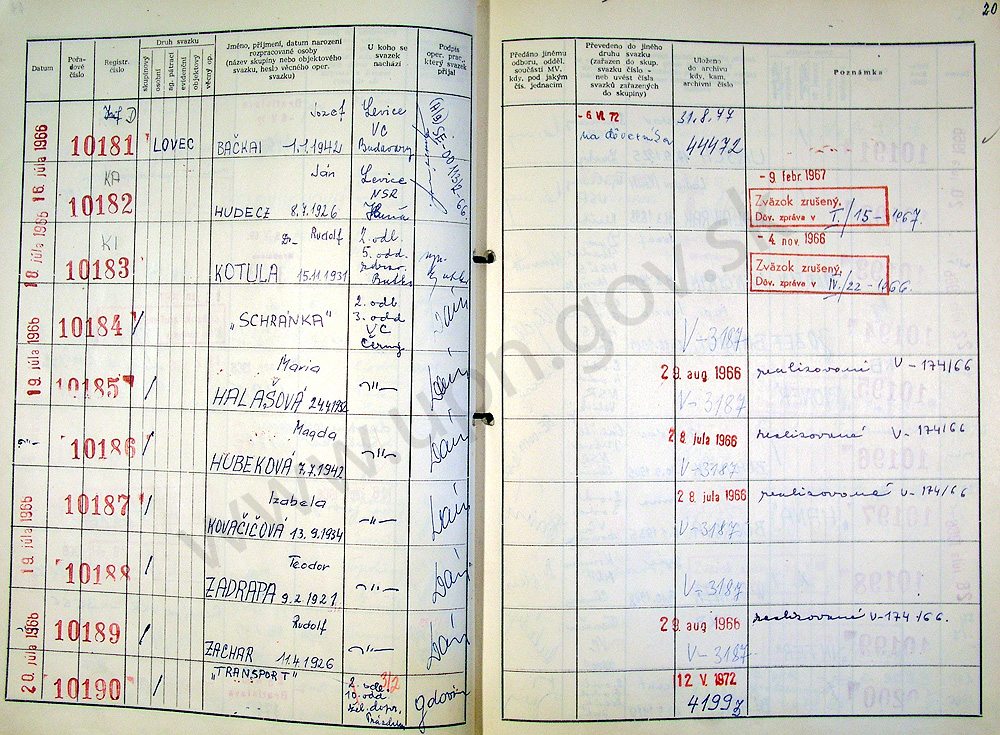 20
Datum
Pořadové číslo
Registr. číslo
Druh svazku
skupinový
osobní
sg. pátrací
evidenční
objektový
věcný op.
Jméno, příjmení, datum narození
rozpracované osoby
(název skupiny nebo objektového
svazku, heslo věcného oper.
svazku)
U koho se
svazek
nachází
Podpis
oper. prac.,
který svazek
přijal
Předáno jinému
odboru, odděl.
součásti MV,
kdy, pod jakým
čís. jednacím
Převedeno do jiného
druhu svazku
(zařazen do skup.
svazku číslo -
neb uvést čísla
svazků zařazených
do skupiny)
Uloženo
do archivu
kdy, kam,
archivní číslo
Poznámka
16. júla 1966
10181
LOVEC
Jozef
BAČKAI 1.1.1942
Levice
VC
- 6. VI. 72
31.8.77
44472
KA
10182
Ján
HUDECZ 8.7.1926
Levice
NSR
- 9. febr. 1967
Zväzok zrušený.
Dôv. zpráva v I./15-1967.
18. júla 1966
KI
10183
Rudolf
KOTULA 15.11.1931
2. odl.
5. odd.
- 4. nov. 1966
Zväzok zrušený.
Dôv. zpráva v IV./22-1966.
19. júla 1966
10184 /
"SCHRÁNKA"
2. odb
3. odd
VC
Černý
V-3187
10185 /
Maria
HALAŠOVÁ 24.4.1932
-"-
29. aug 1966
V-3187
realizované V-174/66
-"-
10186 /
Magda
HUBEKOVÁ 7.7.1942
-"-
28. jula 1966
V-3187
realizované V-174/66
19. júla 1966
10187 /
Izabela
KOVAČIČOVÁ 13.9.1934
-"-
28. jula 1966
V-3187
realizované V-174/66
10188 /
Teodor
ZADRAPA 9.2.1921
-"-
V-3187
20. júla 1966
10189 /
Rudolf
ZACHAR 11.4.1926
-"-
29. aug 1966
V-3187
realizované V-174/66.
10190 /
"TRANSPORT"
2. odl.
3/2
10. odd
12. V. 1972
www.upn.gov.sk